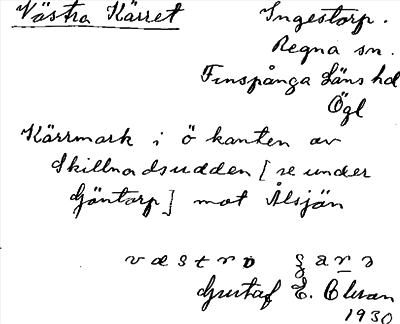 Västra Kärret
Ingestorp.
Regna sn.
Finspånga Läns hd
Ögl
Kärrmark i ö kanten av
Skillnadsudden [se under
Göntorp] mot Ålsjön
Gustaf E. Olsson
1930